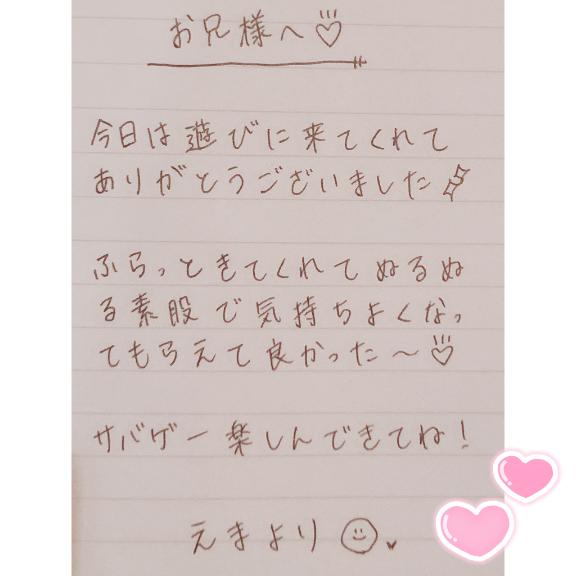 お兄様へ♡
今日は遊びに来てくれて
ありがとうございました
ふらっときてくれてぬるぬ
る素股で気持ちよくなっ
てもらえて良かった〜♡
サバゲー楽しんできてね!
えまより